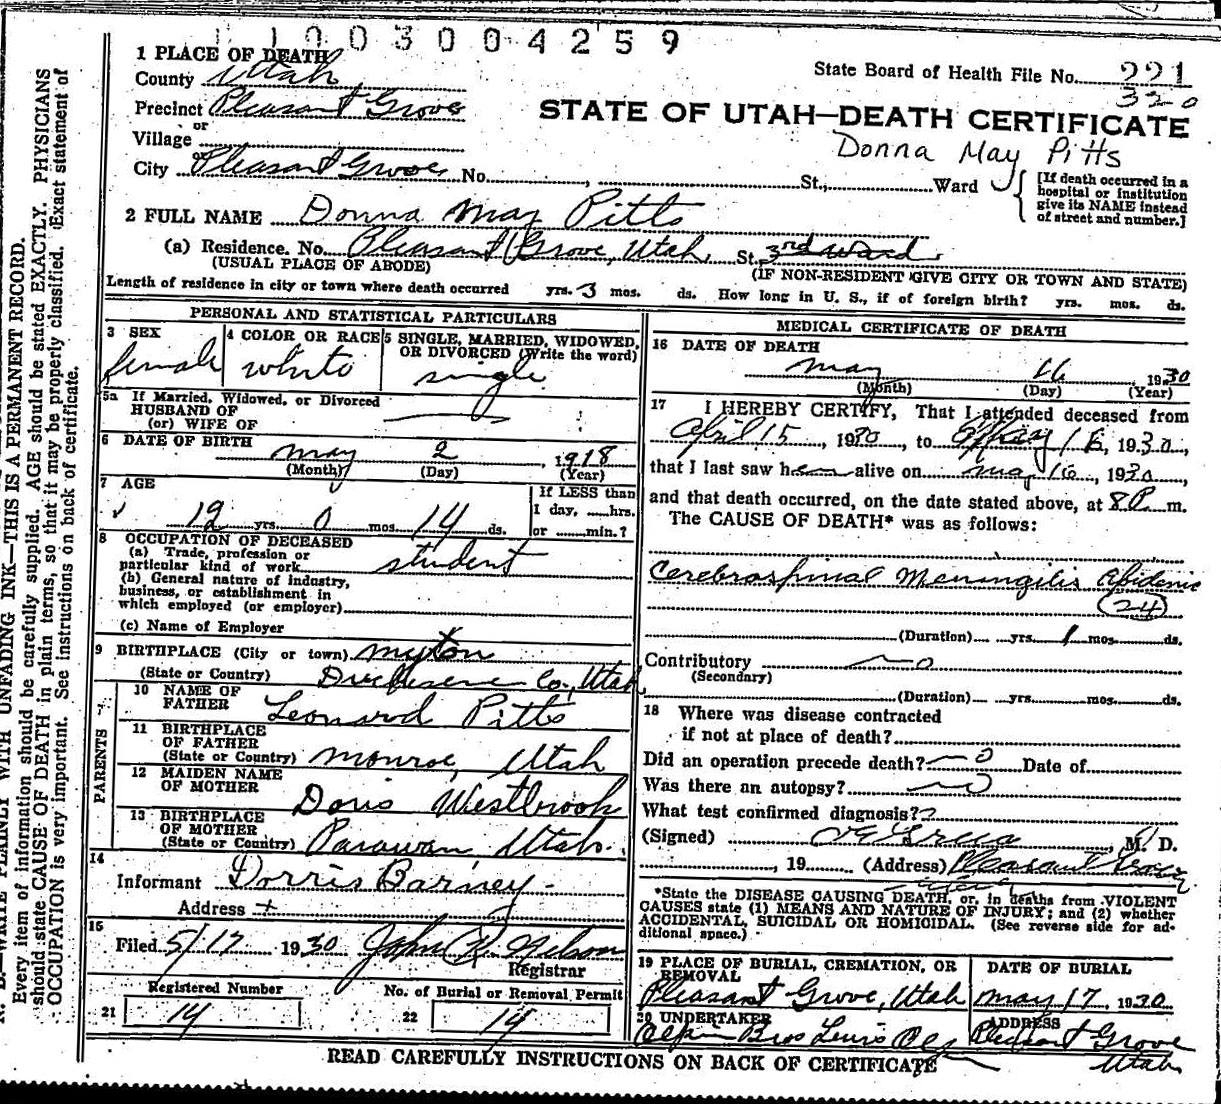 1 1 0 0 3 0 0 4 2 5 9
1 PLACE OF DEATH
County Utah
State Board of Health File No. 221
320
Precinct Pleasant Grove
STATE OF UTAH—DEATH CERTIFICATE
or
Village
Donna May Pitts
City Pleasant Grove No. , St., Ward
[If death occurred in a
hospital or institution
give its NAME instead
of street and number.]
2 FULL NAME Donna May Pitts
(a) Residence. No. Pleasant Grove, Utah St., 3rd Ward
(USUAL PLACE OF ABODE) (IF NON-RESIDENT GIVE CITY OR TOWN AND STATE)
Length of residence in city or town where death occurred yrs. 3 mos. ds. How long in U. S., if of foreign birth? yrs. mos. ds.
PERSONAL AND STATISTICAL PARTICULARS
3 SEX
female
4 COLOR OR RACE
white
5 SINGLE, MARRIED, WIDOWED,
OR DIVORCED (Write the word)
single
5a If Married, Widowed, or Divorced
HUSBAND OF
(or) WIFE OF
6 DATE OF BIRTH
May 2, 1918
(Month) (Day) (Year)
7 AGE
12 yrs. 0 mos. 14 ds.
If LESS than
1 day, ......hrs.
or .......min.?
8 OCCUPATION OF DECEASED
(a) Trade, profession or
particular kind of work student
(b) General nature of industry,
business, or establishment in
which employed (or employer)
(c) Name of Employer
9 BIRTHPLACE (City or town) Myton
(State or Country) Duchesene Co., Utah
PARENTS
10 NAME OF
FATHER Leonard Pitts
11 BIRTHPLACE
OF FATHER
(State or Country) Monroe, Utah
12 MAIDEN NAME
OF MOTHER Doris Westbrook
13 BIRTHPLACE
OF MOTHER
(State or Country) Parawan, Utah.
14
Informant Dorris Barney
Address
15
Filed 5/17 1930 John R. Nelson
Registrar
Registered Number
21 14
No. of Burial or Removal Permit
22 14
MEDICAL CERTIFICATE OF DEATH
16 DATE OF DEATH
May 16 1930
(Month) (Day) (Year)
17 I HEREBY CERTIFY, That I attended deceased from
April 15, 1930, to May 16, 1930,
that I last saw her alive on May 16, 1930,
and that death occurred, on the date stated above, at 8 P. m.
The CAUSE OF DEATH* was as follows:
Cerebrospinal Menengitis Epidemic
(24)
(Duration) yrs. 1 mos. ds.
Contributory no
(Secondary)
(Duration) yrs. mos. ds.
18 Where was disease contracted
if not at place of death?
Did an operation precede death? no Date of
Was there an autopsy? no
What test confirmed diagnosis?
(Signed) , M. D.
, 19 (Address) Pleasant Grove
*State the DISEASE CAUSING DEATH, or, in deaths from VIOLENT
CAUSES state (1) MEANS AND NATURE OF INJURY; and (2) whether
ACCIDENTAL, SUICIDAL OR HOMICIDAL. (See reverse side for ad-
ditional space.)
19 PLACE OF BURIAL, CREMATION, OR
REMOVAL
Pleasant Grove, Utah
DATE OF BURIAL
May 17, 1930
20 UNDERTAKER
Bros
ADDRESS
Pleasant Grove
Utah
READ CAREFULLY INSTRUCTIONS ON BACK OF CERTIFICATE
N. B.—WRITE PLAINLY WITH UNFADING INK—THIS IS A PERMANENT RECORD.
Every item of information should be carefully supplied. AGE should be stated EXACTLY. PHYSICIANS
should state CAUSE OF DEATH in plain terms, so that it may be properly classified. (Exact statement of
OCCUPATION is very important. See instructions on back of certificate.